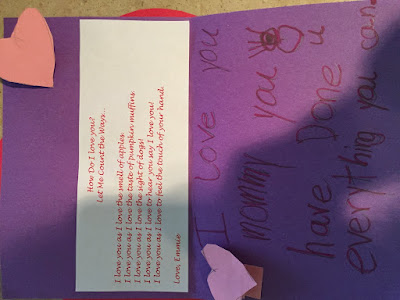 How Do I love you?
Let Me Count the Ways...
I love you as I love the smell of apples.
I love you as I love the taste of pumpkin muffins.
I love you as I love the sight of dogs!
I love you as I love to hear you say I love you!
I love you as I love to feel the touch of your hand.
Love, Emmie
I love you
mommy you
have Done u
everything you can.